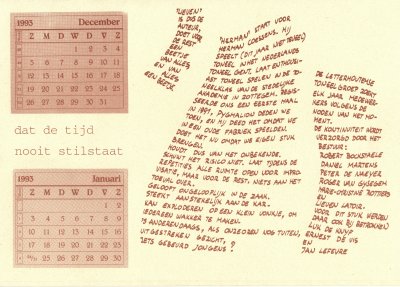 1993 December
Z M D W D V Z
1 2 3 4
5 6 7 8 9 10 11
12 13 14 15 16 17 18
19 20 21 22 23 24 25
26 27 28 29 30 31
dat de tijd
nooit stilstaat
1993 Januari
Z M D W D V Z
1 2
3 4 5 6 7 8 9
10 11 12 13 14 15 16
17 18 19 20 21 22 23
24/31 25 26 27 28 29 30
"LIEVEN"
IS DUS DE
AUTEUR,
DOET VOOR
DE REST
EEN
BEETJE
VAN ALLES
EN VAN
ALLES
EEN BEETJE.
"HERMAN" START VOOR
HERMAN COESSENS. HIJ
SPEELT (DIT JAAR NIET TENEEL)
TONEEL IN HET NEDERLANDS
TONEEL GENT. LAAT ENTHOUSI-
AST TONEEL SPELEN IN DE TO-
NEELKLAS VAN DE STEDELIJKE
ACADEMIE IN ZOTTEGEM. REGIS-
SEERDE ONS EEN EERSTE MAAL
IN 1991, PYGMALION DEDEN WE
TOEN, EN HIJ DEED HET OMDAT WE
IN EEN OUDE FABRIEK SPEELDEN.
DOET HET NU OMDAT WE EIGEN STUK
BRENGEN.
HOUDT DUS VAN HET ONBEKENDE.
SCHUWT HET RISICO NIET. LAAT TIJDENS DE
REPETITIES ALLE RUIMTE OPEN VOOR IMPRO-
VISATIE, MAAR VOOR DE REST, NIETS AAN HET
TOEVAL OVER.
GELOOFT ONGELOOFLIJK IN DE ZAAK.
STEEKT AANSTEKELIJK AAN DE KAR.
KAN EXPLODEREN OP EEN KLEIN VONKJE, OM
IEDEREEN WAKKER TE MAKEN.
'S ANDERENDAAGS, ALS ONZE OREN NOG TUITEN,
UITGESTREKEN GEZICHT,
IETS GEBEURD JONGENS?
DE LETTERHOUTEMSE
TONEELGROEP ZOEKT
ELK JAAR MEDEWER-
KERS VOLGENS DE
NODEN VAN HET MO-
MENT.
DE KONTINUITEIT WORDT
VERZORGD DOOR HET
BESTUUR:
ROBERT BOCKSMELE
DANIEL MARTENS
PETER DE MAEYER
ROGER VAN GYSEGEM
MARIE-CHRISTINE ROTTIERS
EN
LIEVEN LATOIR.
VOOR DIT STUK WERDEN
DAAR OOK BIJ BETROKKEN:
LUK DE KNYF
ERNEST DE VIS
EN
JAN LEFEVRE